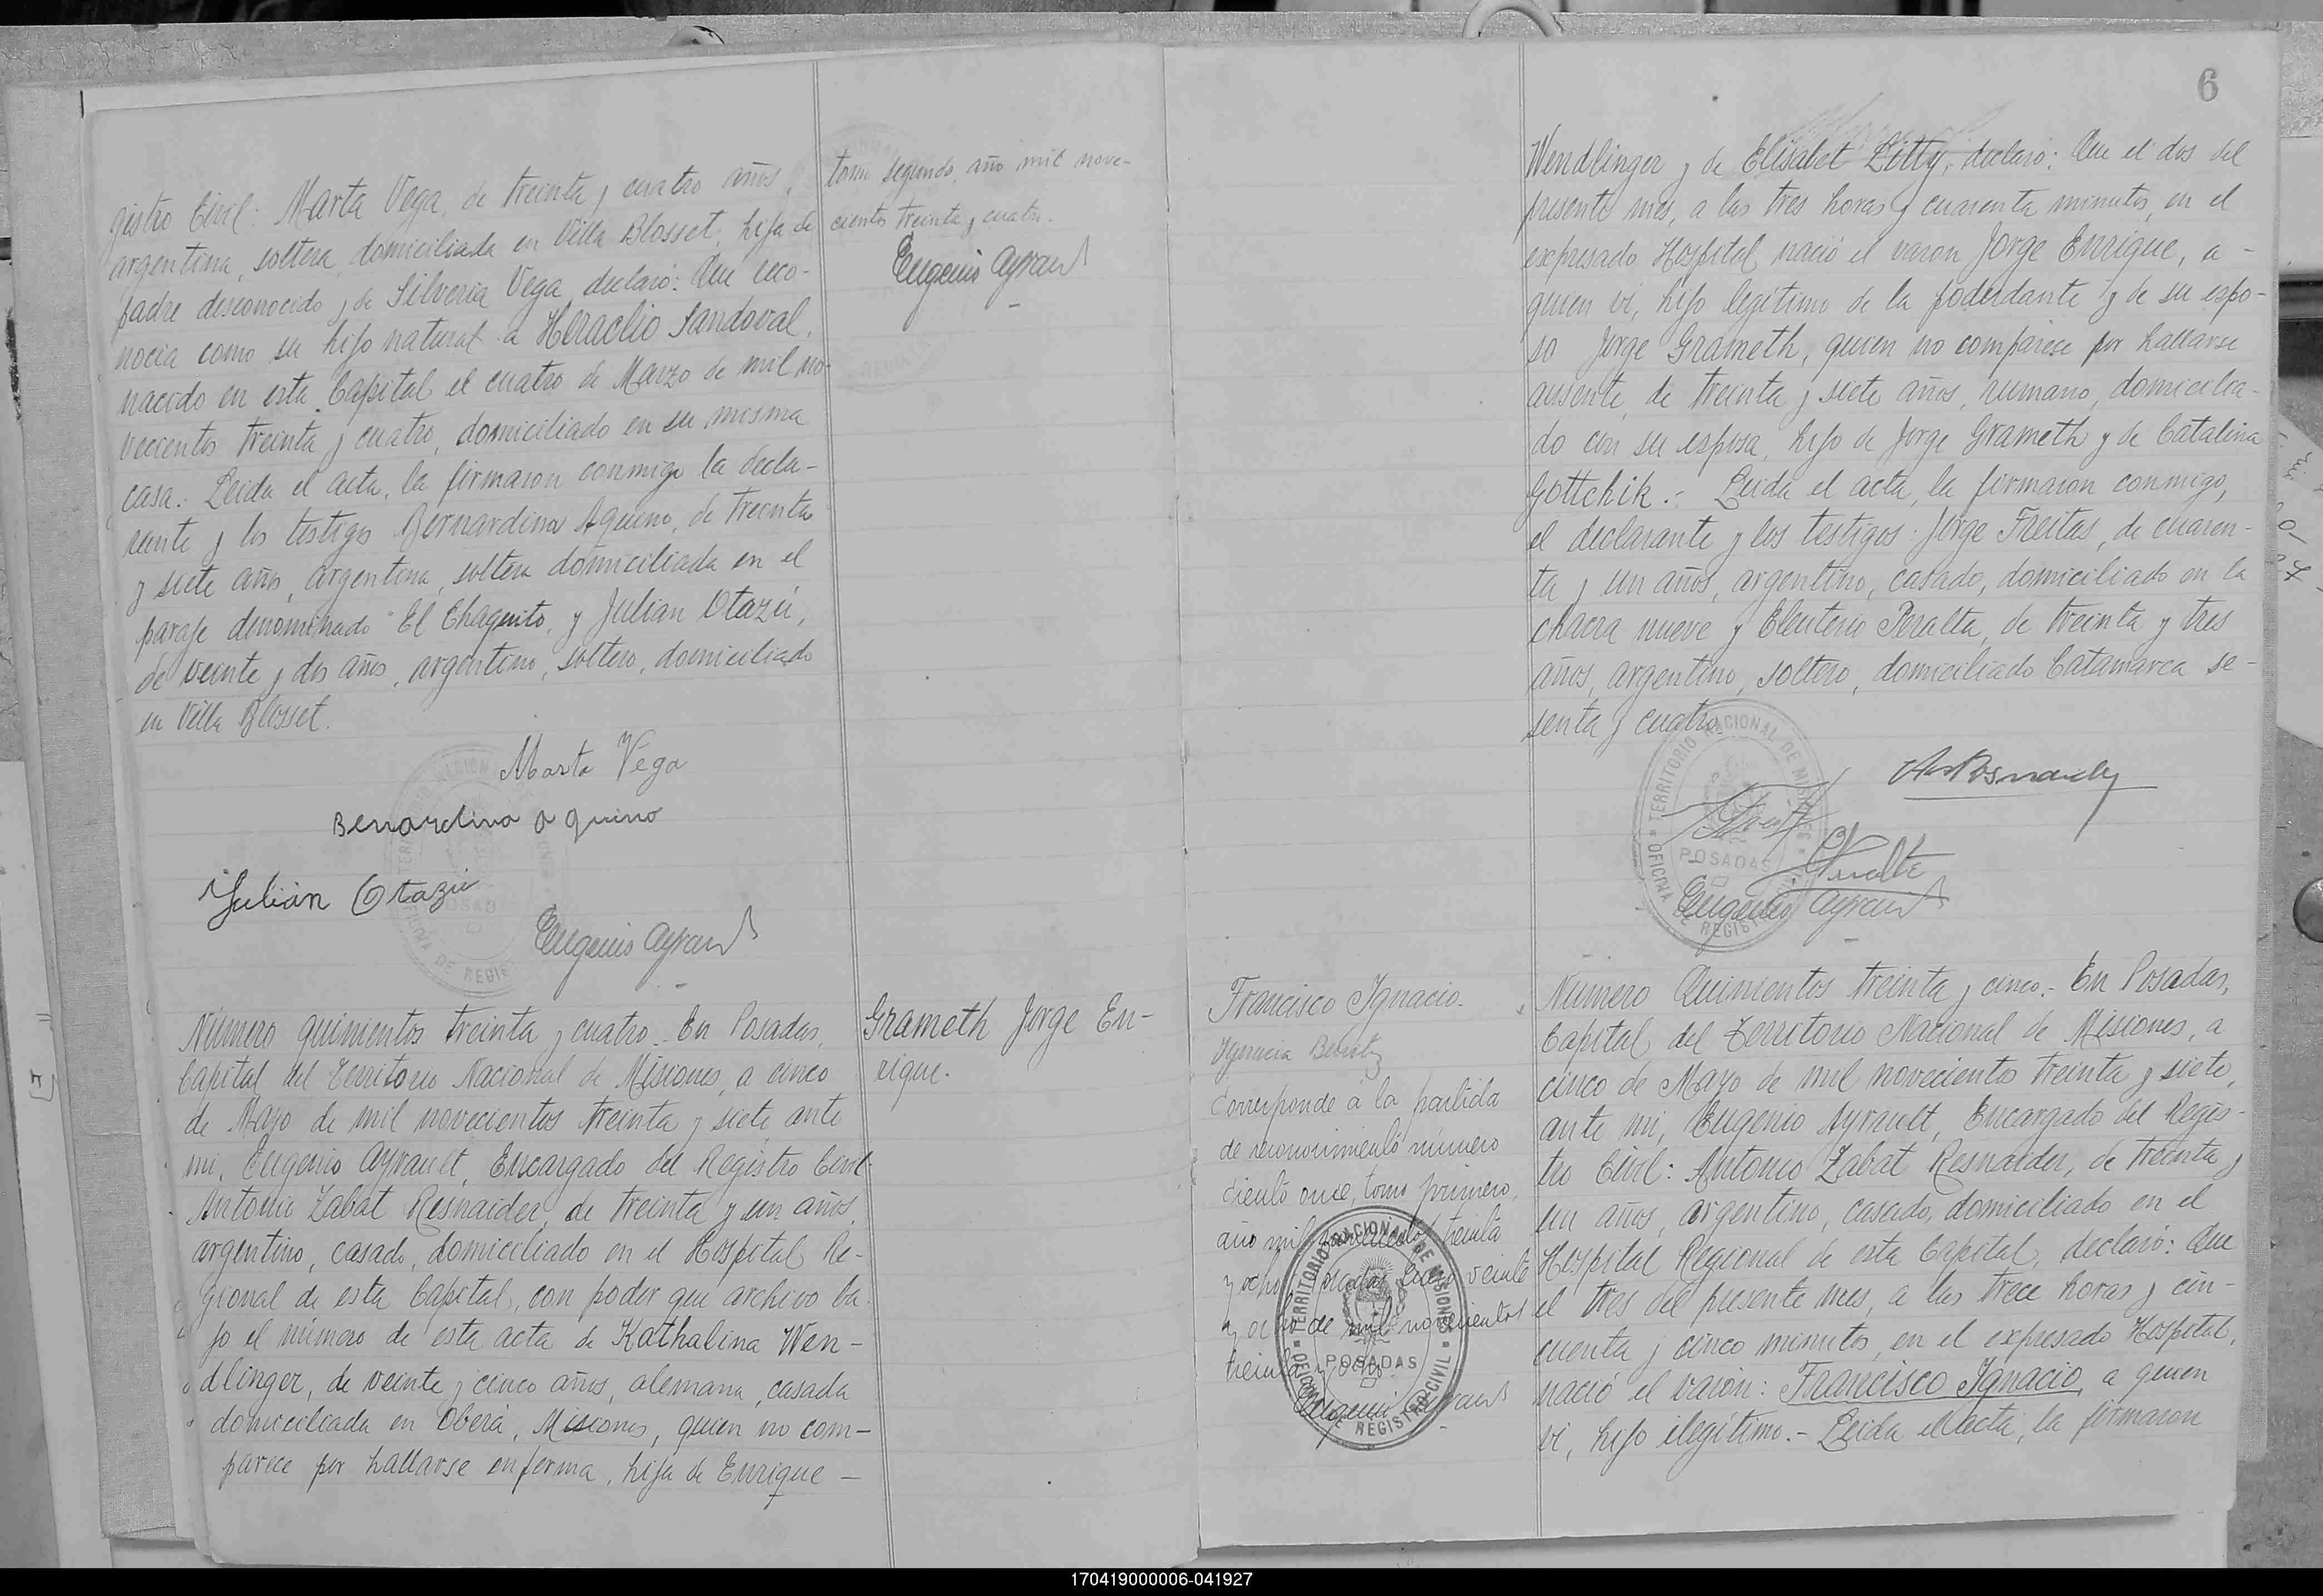 gistro Civil: Marta Vega, de treinta y cuatro años,
argentina, soltera, domiciliada en Villa Blosset, hija de
padre desconocido y de Silveria Vega declaró: Que reco-
nocia como su hijo natural a Heraclio Sandoval,
nacido en esta Capital el cuatro de Marzo de mil no-
vecientos treinta y cuatro, domiciliado en su misma
casa.- Leida el acta, la firmaron conmigo la decla-
rante y los testigos Bernardina Aquino, de treinta
y siete años, argentina, soltera domiciliada en el
paraje denominado "El Chaquito, y Julian Otazú,
de veinte y dos años, argentino, soltero, domiciliado
en Villa Blosset.
Marta Vega
Benardina aquino
Julián Otazú
Eugenio Ayrault
tomo segundo, año mil nove-
cientos treinta y cuatro.
Eugenio Ayrault
Número quinientos treinta y cuatro.- En Posadas,
Capital del Territorio Nacional de Misiones, a cinco
de Mayo de mil novecientos treinta y siete ante
mi, Eugenio Ayrault, Encargado del Registro Civil:
Antonio Zabat Resnaider, de treinta y un años,
argentino, casado, domiciliado en el Hospital Re-
gional de esta Capital, con poder que archivo ba-
jo el número de esta acta de Kathalina Wen-
dlinger, de veinte y cinco años, alemana, casada
domiciliada en Oberá, Misiones, quien no com-
parece por hallarse enferma, hija de Enrique -
Grameth Jorge En-
rique.
6
Wendlinger y de Elisabet Litty, declaró: Que el dos del
presente mes, a las tres horas y cuarenta minutos, en el
expresado Hospital nació el varon Jorge Enrique, a -
quien vi, hijo legítimo de la poderdante y de su espo-
so Jorge Grameth, quien no comparece por hallarse
ausente, de treinta y siete años, rumano, domicilia-
do con su esposa, hijo de Jorge Grameth y de Catalina
Gottchik.- Leida el acta, la firmaron conmigo,
el declarante y los testigos: Jorge Freitas, de cuaren-
ta y un años, argentino, casado, domiciliado en la
chacra nueve y Eleuterio Peralta, de treinta y tres
años, argentino, soltero, domiciliado Catamarca se-
senta y cuatro.
TERRITORIO NACIONAL DE MISIONES
POSADAS
OFICINA DE REGISTRO CIVIL
Eugenio Ayrault
Francisco Ignacio.
Ignacia
Corresponde á la partida
de reconocimiento número
ciento once, tomo primero,
año mil novecientos treinta
y ocho. Posadas, veinte
y ocho de mil novecientos
treinta y ocho.
TERRITORIO NACIONAL DE MISIONES
POSADAS
OFICINA DE REGISTRO CIVIL
Eugenio Ayrault
Número Quinientos treinta y cinco.- En Posadas,
Capital del Territorio Nacional de Misiones, a
cinco de Mayo de mil novecientos treinta y siete,
ante mi, Eugenio Ayrault, Encargado del Regis-
tro Civil: Antonio Zabat Resnaider, de treinta y
un años, argentino, casado, domiciliado en el
Hospital Regional de esta Capital, declaró: Que
el tres del presente mes, a las trece horas y cin-
cuenta y cinco minutos, en el expresado Hospital,
nació el varon: Francisco Ignacio, a quien
vi, hijo ilegítimo.- Leida el acta, la firmaron
170419000006-041927